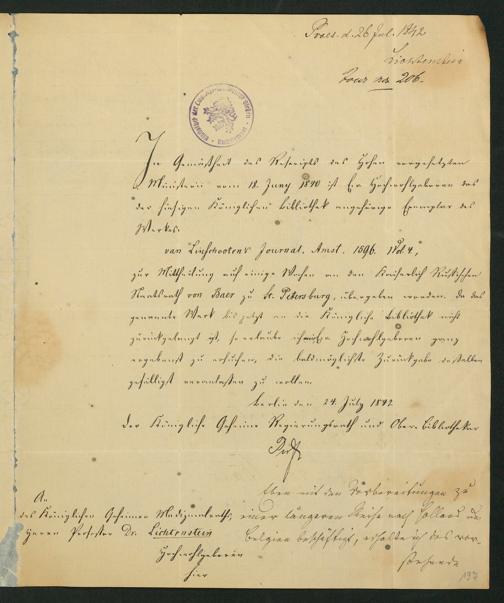 Praes. d. 26 Jul. 1842
Lichtenstein
Jour. No. 206.
In Gemäßheit des Rescripts des Hohen vorgesetzten
Ministerii vom 18. Juny 1840 ist Ew. Hochwohlgeboren das
der hiesigen Königlichen Bibliothek angehörige Exemplar des
Werkes:
van Linschooten's Journal. Amst. 1596. Vol 4,
zur Mittheilung auf einige Wochen an den Kaiserlich Russischen
Staatsrath von Baer zu St. Petersburg, übergeben worden. Da das
genannte Werk bis jetzt an die Königliche Bibliothek nicht
zurückgelangt ist, so erlaube ich mir Ew. Hochwohlgeboren ganz
ergebenst zu ersuchen, die baldmöglichste Zurückgabe desselben
gefälligst veranlassen zu wollen.
Berlin den 24. July 1842
Der Königliche Geheime Regierungsrath und Ober-Bibliothekar
An
des Königlichen Geheimen Medizinalraths,
Herrn Professor Dr. Lichtenstein
Hochwohlgeboren
hier
Eben mit den Vorbereitungen zu
einer längeren Reise nach Holland u.
Belgien beschäftigt, erhalte ich das vor-
stehende
197